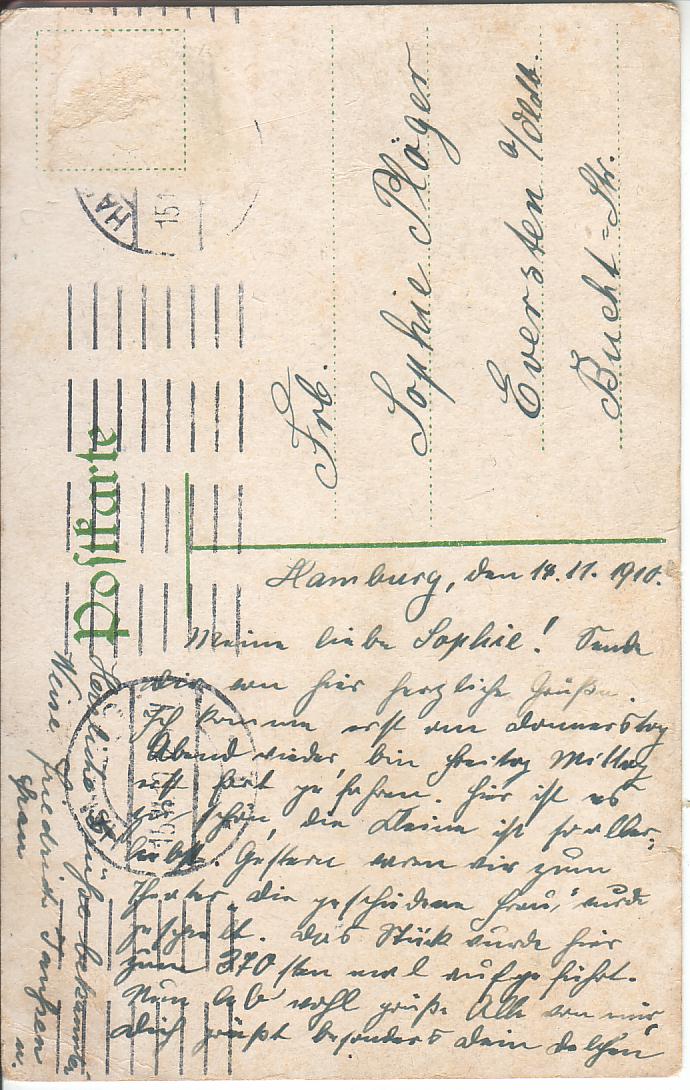 Postkarte
HA
15.1
Frl.
Sophie Plöger
Eversten a/Oldb.
Bucht-Str.
Hamburg, den 14.11.1910.
Meine liebe Sophie! Sende
dir von hier herzliche Grüße.
Ich komme erst am Donnerstag
Abend wieder, bin Freitag Mittag
erst fort gefahren. Hier ist es
schön, die Kleine ist so aller-
liebst. Gestern waren wir zum
Theater „die geschiedene Frau" wurde
gespielt. Das Stück wurde hier
zum 370sten mal aufgeführt.
Nun leb' wohl grüße Alle von mir
Dich grüßt besonders Dein
Herzliche Grüße
Friedrich Janßen
u. Frau